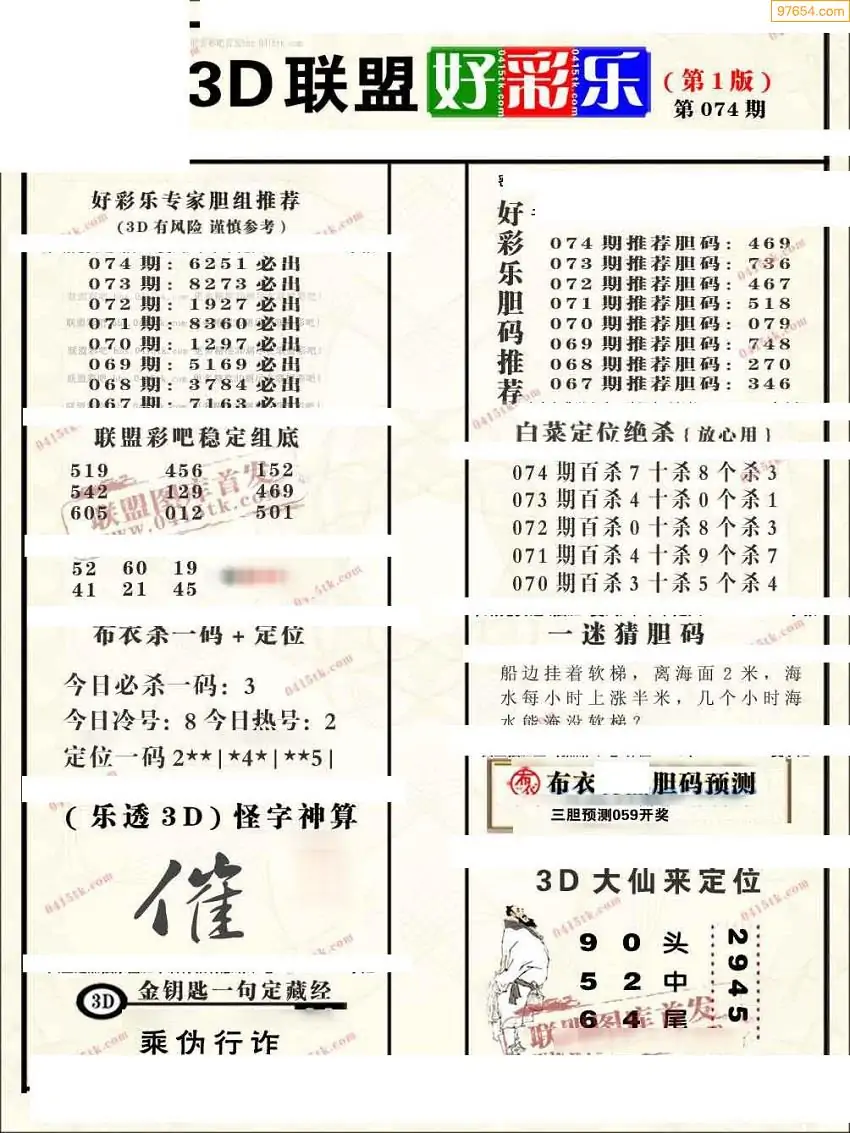 97654.com
3D联盟好彩乐
(第1版)
第074期
好彩乐专家胆组推荐
(3D有风险 谨慎参考)
074期: 6251必出
073期: 8273必出
072期: 1927必出
071期: 8360必出
070期: 1297必出
069期: 5169必出
068期: 3784必出
067期: 7163必出
联盟彩吧稳定组底
519 456 152
542 129 469
605 012 501
52 60 19
41 21 45
布衣杀一码+定位
今日必杀一码: 3
今日冷号: 8 今日热号: 2
定位一码 2**|*4*|**5|
(乐透3D)怪字神算
催
3D 金钥匙一句定藏经
乘伪行诈
好彩乐胆码推荐
074期推荐胆码: 469
073期推荐胆码: 736
072期推荐胆码: 467
071期推荐胆码: 518
070期推荐胆码: 079
069期推荐胆码: 748
068期推荐胆码: 270
067期推荐胆码: 346
白菜定位绝杀{放心用}
074期百杀7十杀8个杀3
073期百杀4十杀0个杀1
072期百杀0十杀8个杀3
071期百杀4十杀9个杀7
070期百杀3十杀5个杀4
一迷猜胆码
船边挂着软梯，离海面2米，海
水每小时上涨半米，几个小时海
水能淹没软梯？
布衣 胆码预测
三胆预测059开奖
3D大仙来定位
9 0 头
5 2 中
6 4 尾
2945
联盟图库首发
www.0415tk.com
0415tk.com